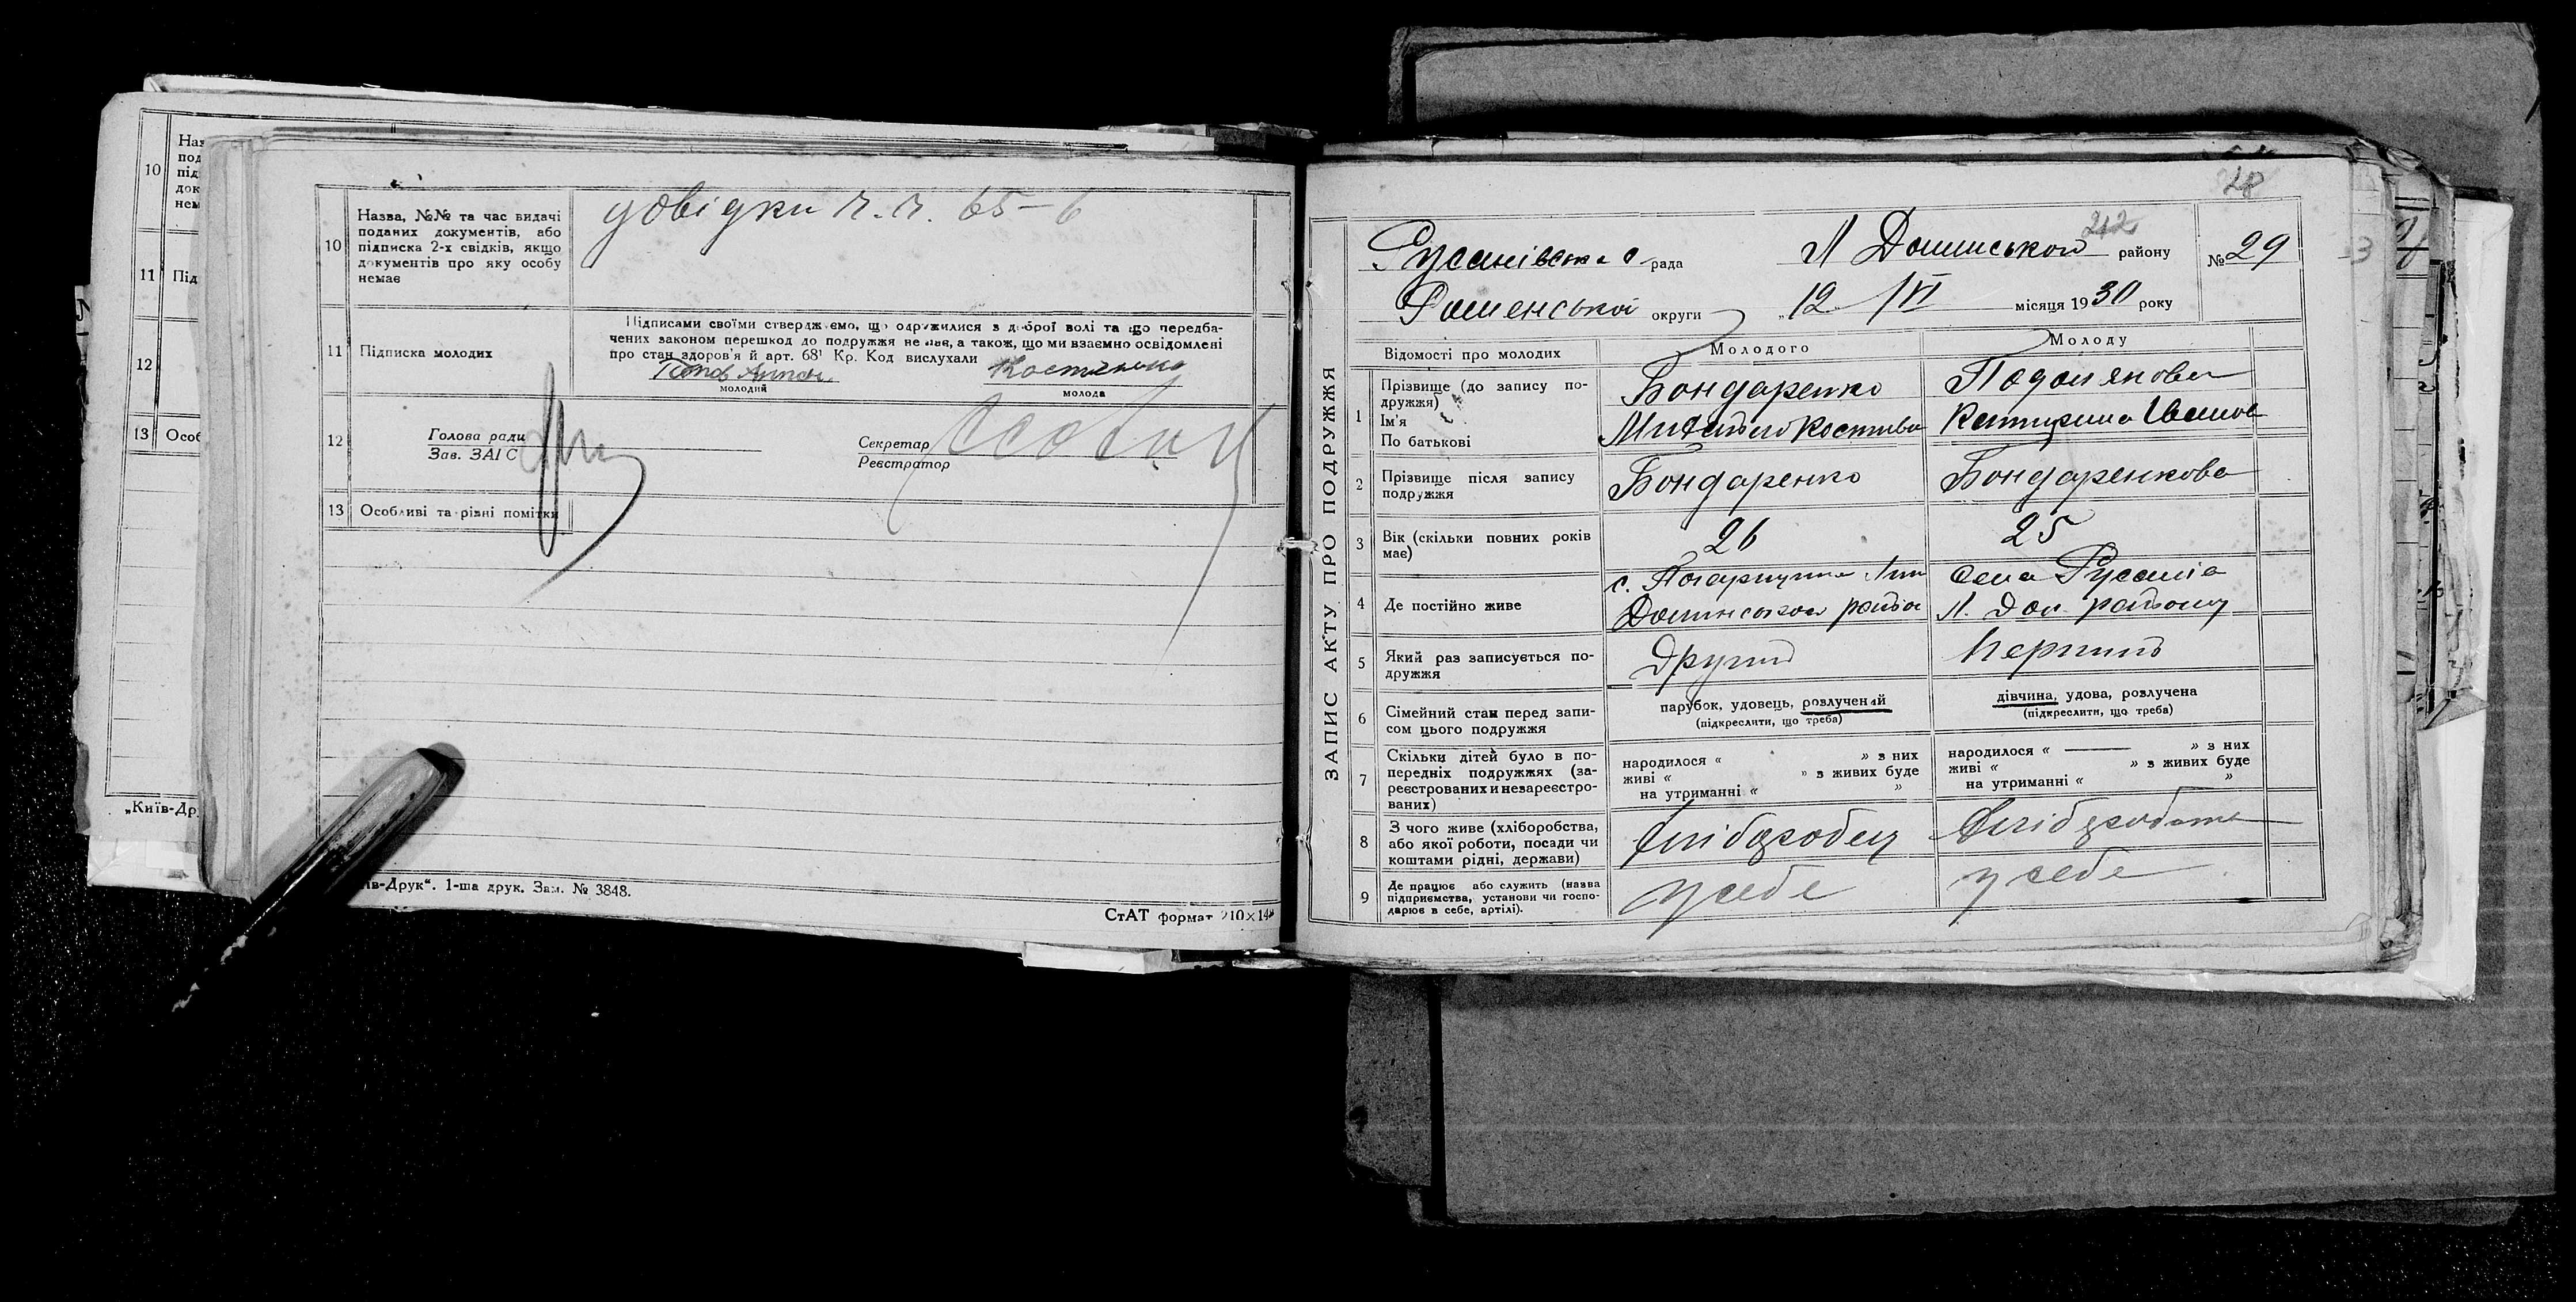 10
Наз
под
під
док
нем
11 Під
12
13 Особ
„Київ-Др
10 Назва, №№ та час видачі
поданих документів, або
підписка 2-х свідків, якщо
документів про яку особу
немає
довідки ч. ч. 65 — 6
11 Підписка молодих
Підписами своїми стверджуємо, що одружилися з доброї волі та що передба-
чених законом перешкод до подружжя не має, а також, що ми взаємно освідомлені
про стан здоров'я й арт. 68¹ Кр. Код вислухали
молодий
молода
12 Голова ради
Зав. ЗАГС
Секретар
Реєстратор
13 Особливі та різні помітки
їв-Друк“. 1-ша друк. Зам. № 3848.
СтАТ формат 210×148
28
212
Русанівська рада Л Долинського району № 29
Роменської округи „12 /VI місяця 1930 року
ЗАПИС АКТУ ПРО ПОДРУЖЖЯ
Відомості про молодих Молодого Молоду
1 Прізвище (до запису по-
дружжя)
Ім'я
По батькові
Бондаренко
Михайло Костьов
Подолякова
Катерина Іванов
2 Прізвище після запису
подружжя
Бондаренко
Бондаренкова
3 Вік (скільки повних років
має)
26
25
4 Де постійно живе
с. Погарщина Лип
Долинського райо
Села Русанів
Л. Дол. району
5 Який раз записується по-
дружжя
Другий
Перший
6 Сімейний стан перед запи-
сом цього подружжя
парубок, удовець, розлучений
(підкреслити, що треба)
дівчина, удова, розлучена
(підкреслити, що треба)
7 Скільки дітей було в по-
передніх подружжях (за-
реєстрованих и незареєстро-
ваних)
народилося “ ” з них
живі “ ” з живих буде
на утриманні “ ”
народилося “ — ” з них
живі “ ” з живих буде
на утриманні “ ”
8 З чого живе (хліборобства,
або якої роботи, посади чи
коштами рідні, держави)
9 Де працює або служить (назва
підприємства, установи чи госпо-
дарює в себе, артілі).
у себе
у себе